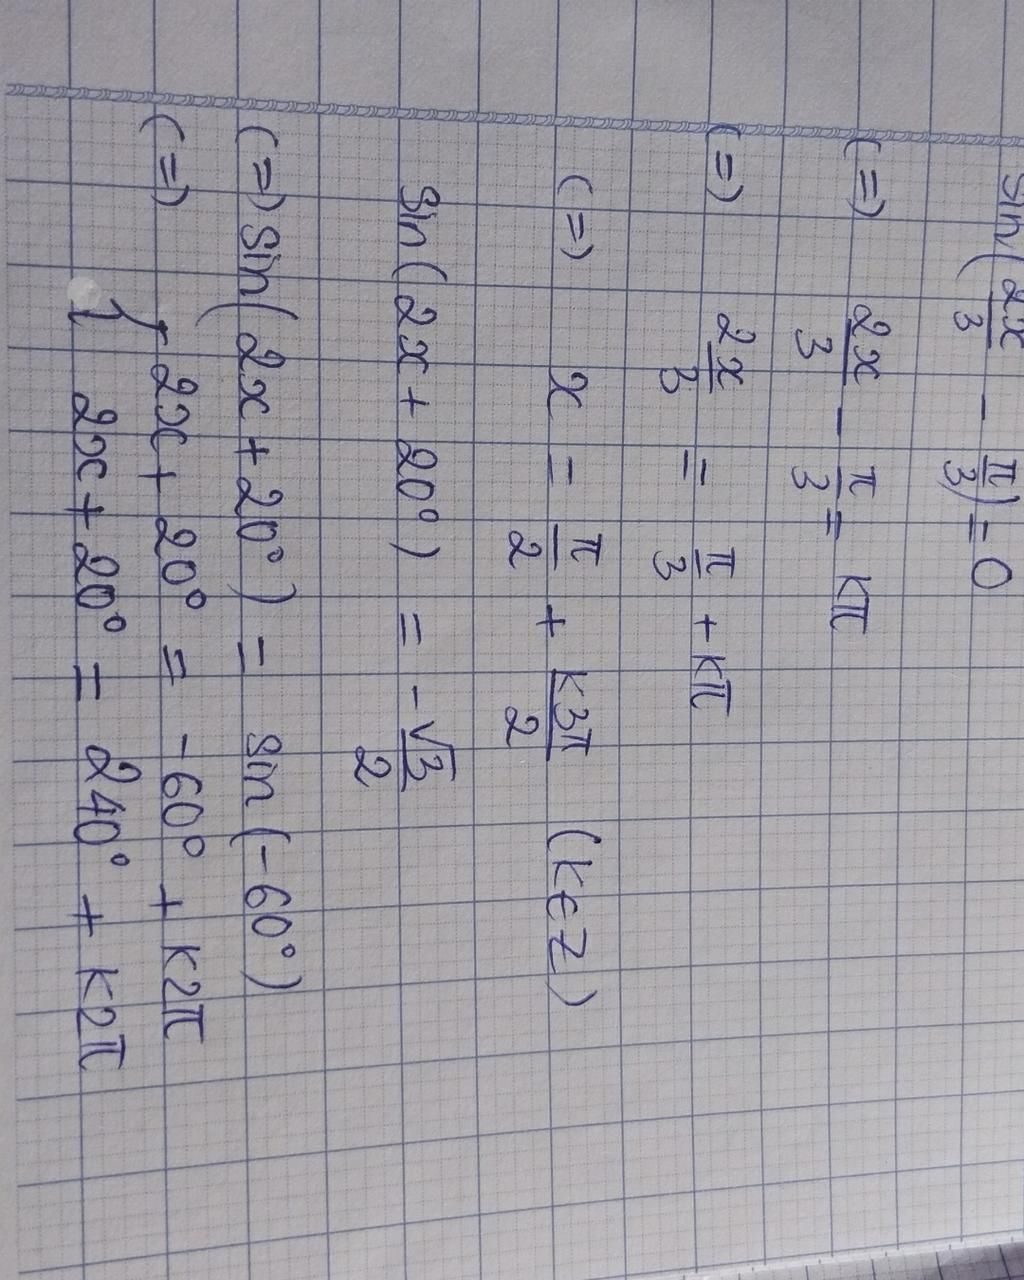 sin(2x/3 - π/3) = 0
(=) 2x/3 - π/3 = kπ
(=) 2x/3 = π/3 + kπ
(=) x = π/2 + k3π/2 (k∈Z)
sin(2x + 20°) = -√3/2
(=) sin(2x + 20°) = sin(-60°)
(=) { 2x + 20° = -60° + k2π
2x + 20° = 240° + k2π